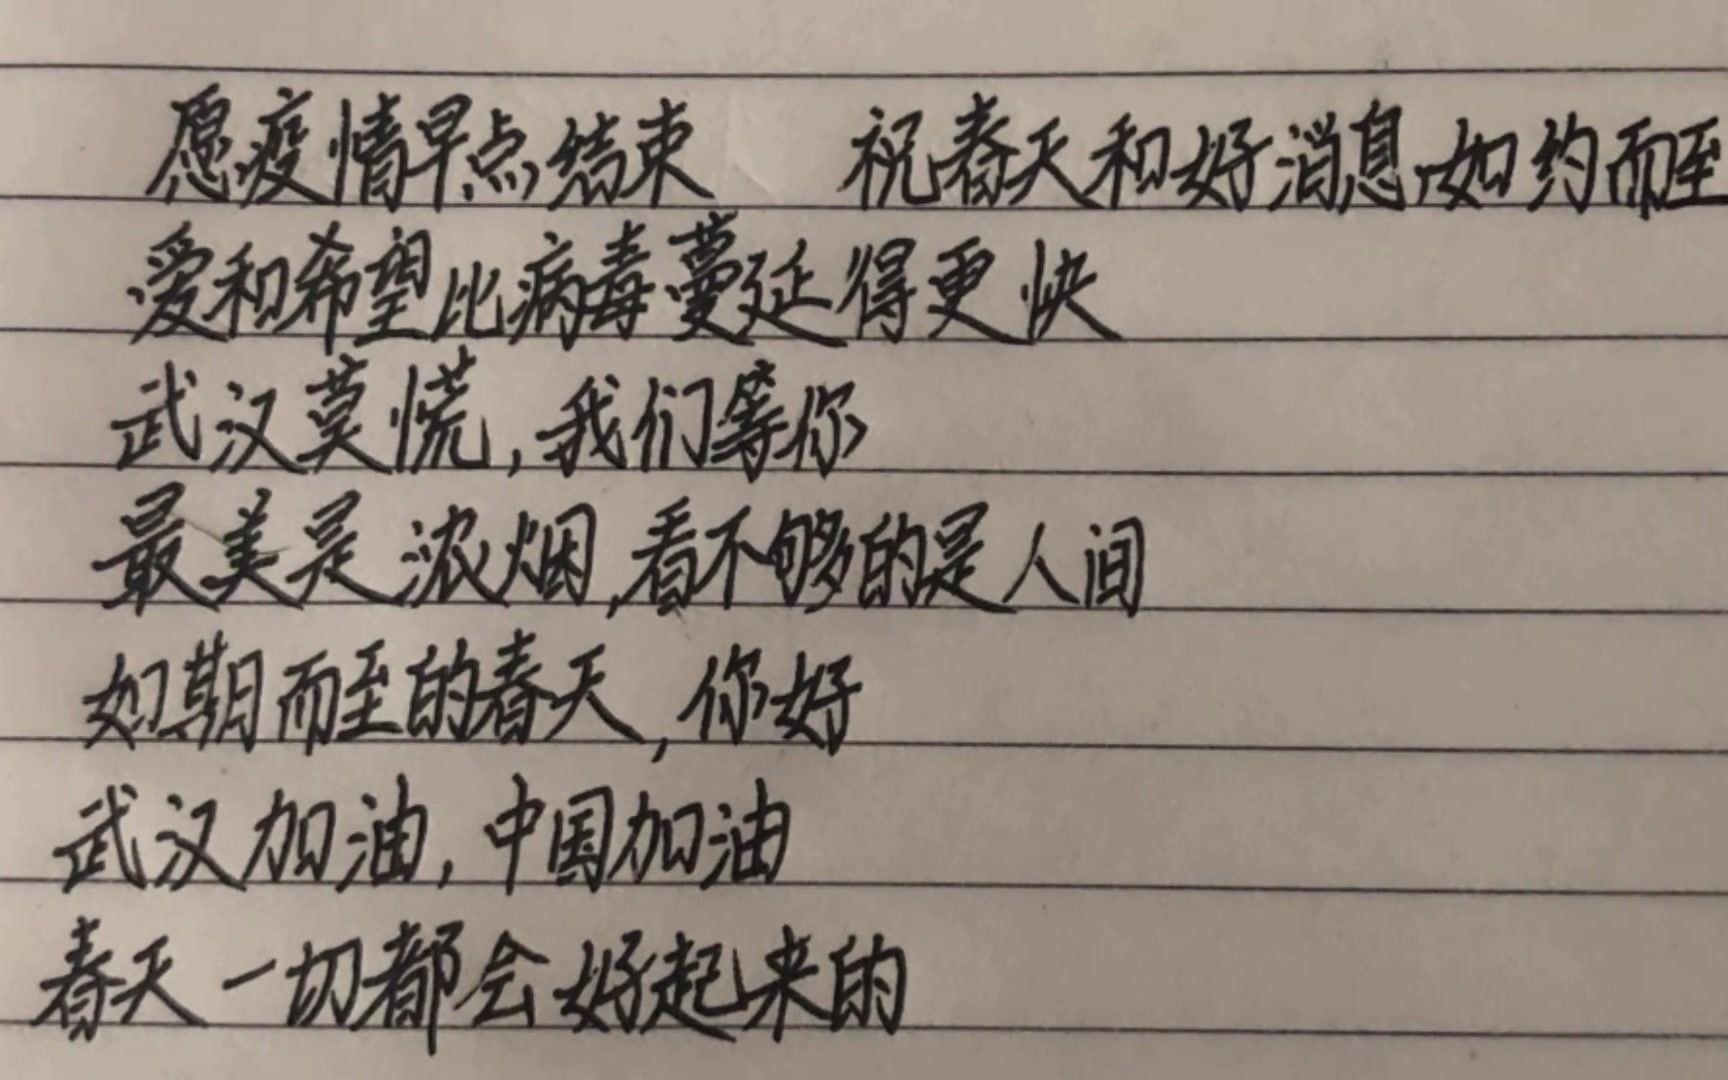 愿疫情早点结束 祝春天和好消息如约而至
爱和希望比病毒蔓延得更快
武汉莫慌,我们等你
最美是浓烟,看不够的是人间
如期而至的春天,你好
武汉加油,中国加油
春天一切都会好起来的